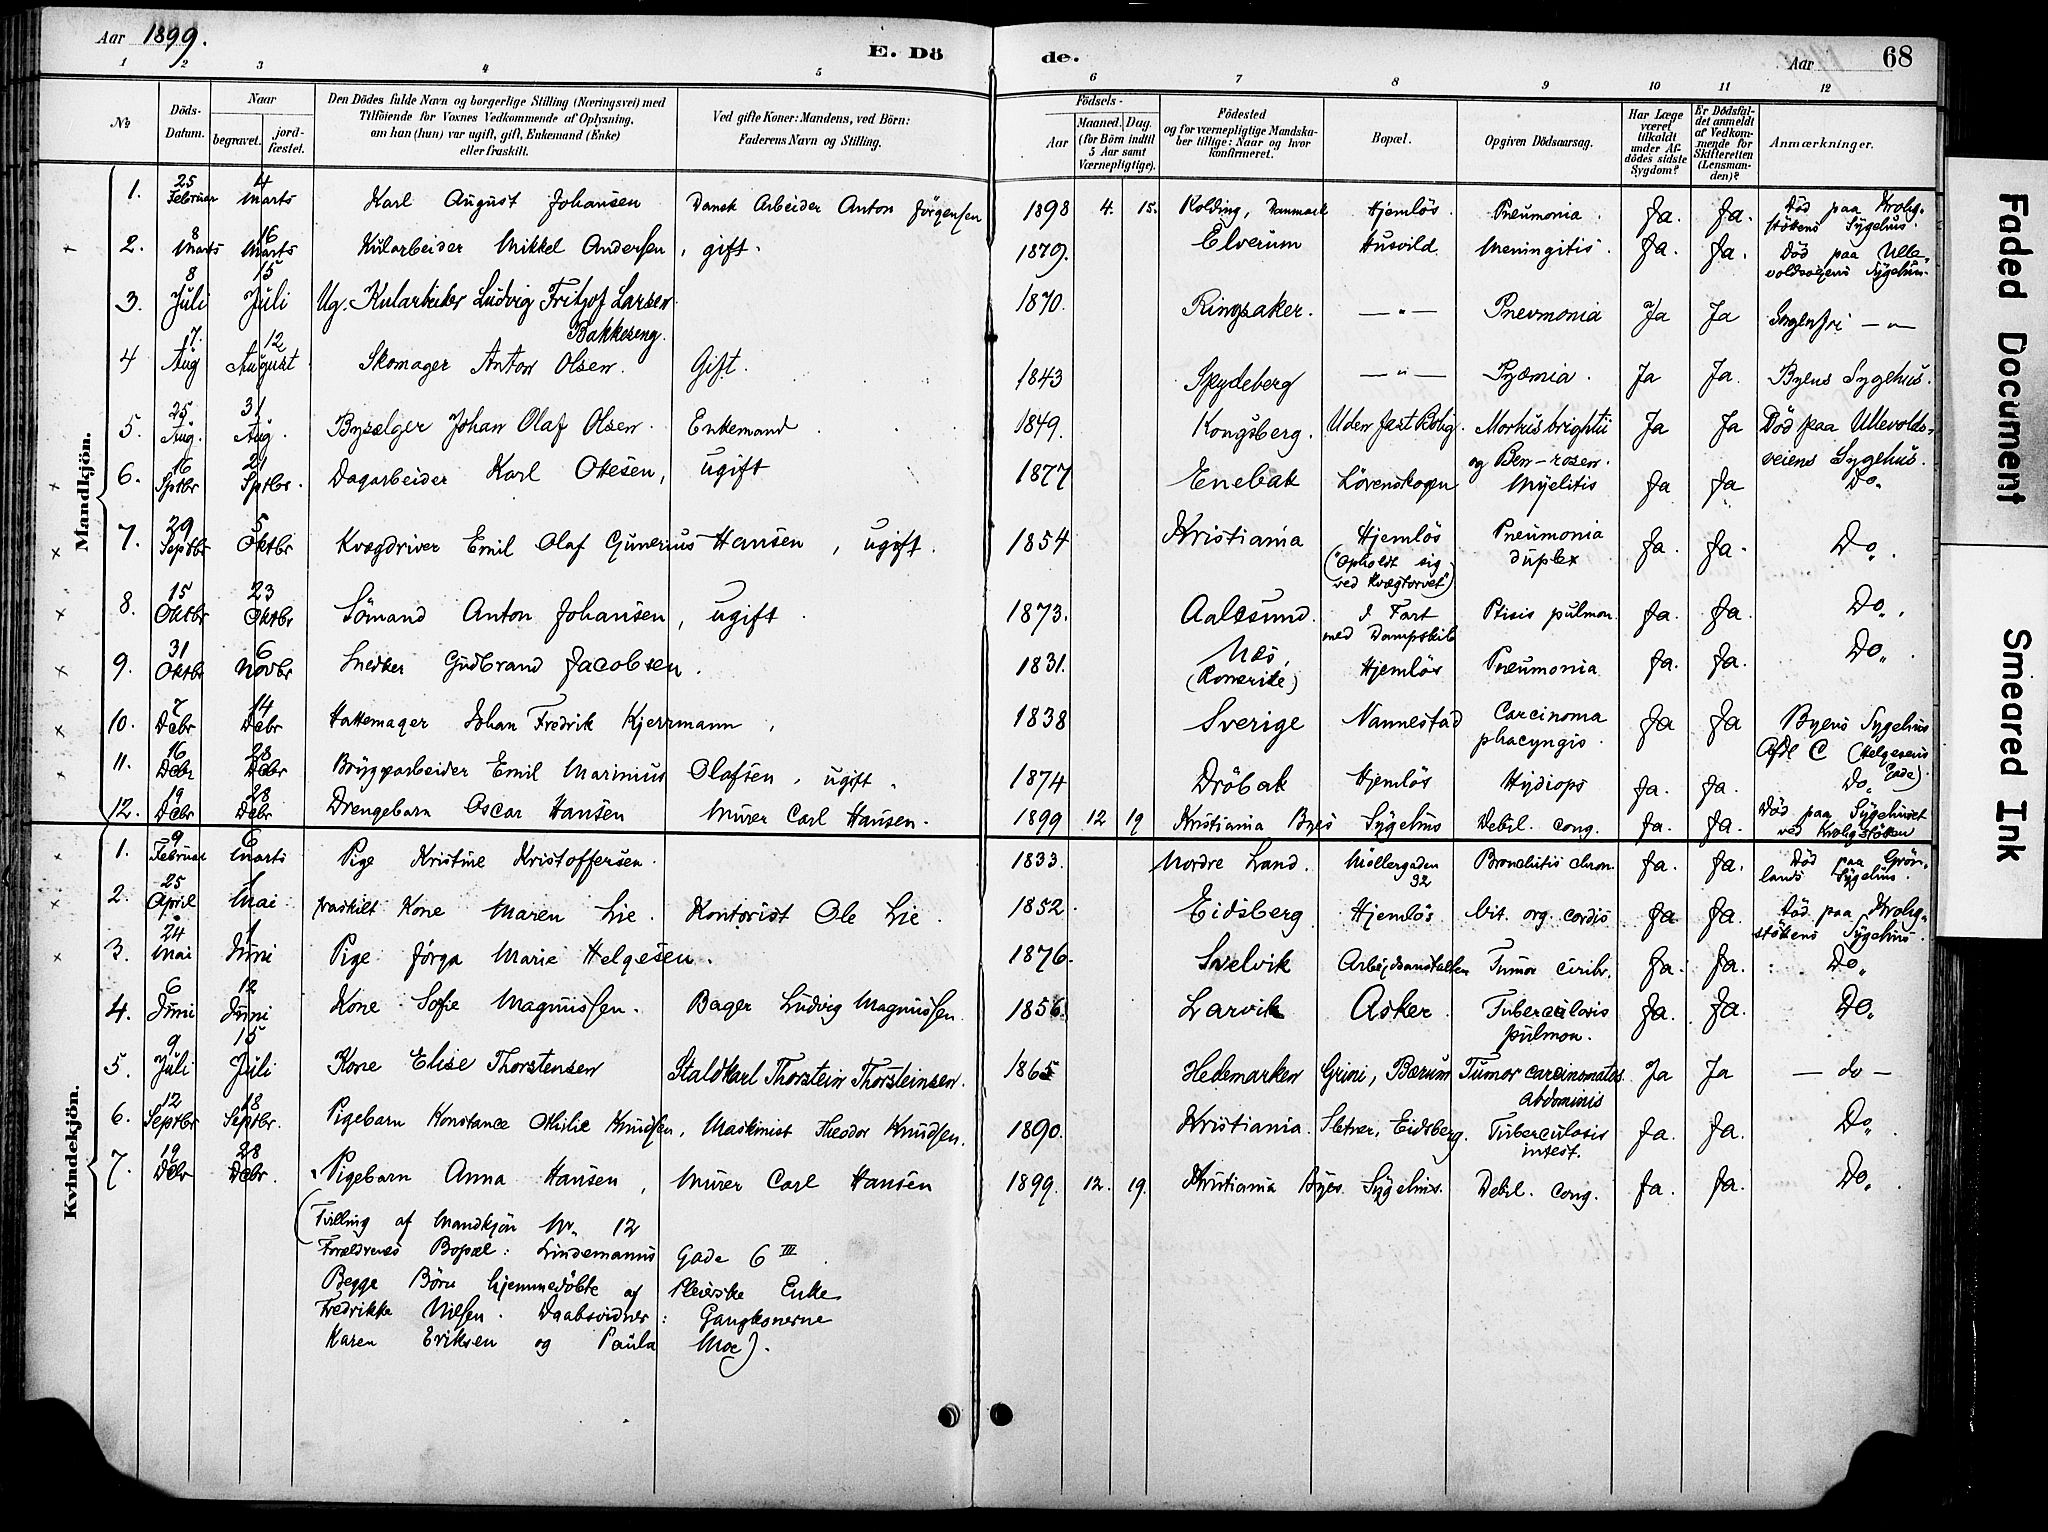 Aar 1899.
E. Dö
de.
Aar
68
1 2 3 4 5 6 7 8 9 10 11 12
No
Döds-Datum.
Naar
begravet.
jord-fæstet.
Den Dödes fulde Navn og borgerlige Stilling (Næringsvei) med
Tilföiende for Voxnes Vedkommende af Oplysning,
om han (hun) var ugift, gift, Enkemand (Enke)
eller fraskilt.
Ved gifte Koner: Mandens, ved Börn:
Faderens Navn og Stilling.
Födsels-
Aar
Maaned. Dag.
(for Börn indtil
5 Aar samt
Værnepligtige).
Födested
og for værnepligtige Mandska-
ber tillige: Naar og hvor
konfirmeret.
Bopæl.
Opgiven Dödsaarsag.
Har Læge
været
tilkaldt
under Af-
dödes sidste
Sygdom?
Er Dödsfal-
det anmeldt
af Vedkom-
mende for
Skifteretten
(Lensman-
den)?
Anmærkninger.
Mandkjön.
1. 25 Februar 4 Marts Karl August Johansen Dansk Arbeider Anton Jörgensen 1898 4. 15. Kolding, Danmark Hjemlös. Pneumonia. Ja. Ja. Död paa Krohg-
stöttens Sygehus.
2. 8 Marts 16 Marts Kularbeider Mikkel Andersen, gift. 1879. Elverum Husvild Meningitis. Ja. Ja. Död paa Ulle-
voldsveiens Sygehus.
3. 8 Juli 15 Juli Ug. Kularbeider Ludvig Fritzof Larsen 1870. Ringsaker. — " — Pneumonia Ja Ja — " —
Bakkeseng.
4 7. Aug 12 August Skomager Anton Olsen. Gift. 1843 Spydeberg — " — Pyæmia. Ja Ja. Byens Sygehus.
5. 25 Aug. 31 Aug. Byselger Johan Olaf Olsen. Enkemand. 1849. Kongsberg. Uden fast Bolig. Morbus brightii Ja Ja Död paa Ullevolds-
og Ben-rosen. veiens Sygehus.
6. 16 Sptbr 21 Sptbr. Dagarbeider Karl Olesen, ugift 1877 Enebak Lövenskogen Myelitis Ja Ja Do.
7. 29 Septbr 5 Oktbr Kvægdriver Emil Olaf Gunerius Hansen, ugift. 1854 Kristiania Hjemlös Pneumonia Ja. Ja. Do.
("opholdt sig duplex
ved Kvægtorvet")
8. 15 Oktbr 23 Oktbr Sömand Anton Johansen, ugift. 1873. Aalesund. I Fart Ptisis pulmon. Ja. Ja. Do.
med Dampskib
9. 31 Oktbr 6 Novbr Snedker Gudbrand Jacobsen. 1831. Næs, Hjemlös Pneumonia Ja. Ja. Do.
(Romerike)
10. 7 Dcbr 14 Dcbr Hattemager Johan Fredrik Kjerrmann, 1838 Sverige Nannestad Carcinoma Ja Ja Byens Sygehus
pharyngis. Afdl C (Helgesens
Gade).
11. 16 Dcbr 28 Dcbr Bryggarbeider Emil Marinius Olafsen, ugift. 1874 Dröbak Hjemlös Hydrops Ja. Ja. Do.
12. 19 Dcbr 28 Dcbr Drengebarn Oscar Hansen Murer Carl Hansen. 1899 12 19 Kristiania Byes Sygehus Debil. cong. Ja. Ja. Död paa Sygehuset
ved Krohgstötten
Kvindekjön.
1. 9 Februar 6 Marts Pige Kristine Kristoffersen. 1833. Nordre Land. Möllergaden Bronchitis chron. Ja. Ja. Död paa Grön-
32 lands Sygehus.
2. 25 April 1 Mai fraskilt Kone Maren Lie. Kontorist Ole Lie. 1852. Eidsberg Hjemlös. Vit. org. cordis Ja Ja. Död paa Krohg-
stöttens Sygehus.
3. 24 Mai 1 Juni Pige Jörga Marie Helgesen. 1876. Svelvik Arbejdsanstalten Tumor cerebr. Ja. Ja. Do.
4. 6 Juni 12 Juni Kone Sofie Magnussen. Bager Ludvig Magnussen. 1856. Larvik Asker. Tuberculosis Ja. Ja. Do.
pulmon.
5. 9 Juli 15 Juli Kone Elise Thorstensen Staldkarl Thorstein Thorsteinsen. 1865 Hedemarken Grini, Bærum Tumor carcinomatos. Ja Ja — do —
abdominis
6. 12 Septbr 18 Septbr. Pigebarn Konstance Othilie Knudsen, Maskinist Theodor Knudsen. 1890. Kristiania. Sletner, Eidsberg. Tuberculosis Ja. Ja. Do.
intest.
7. 19 Dcbr 28 Dcbr. Pigebarn Anna Hansen, Murer Carl Hansen 1899. 12. 19. Kristiania Byes Sygehus. Debil. cong. Ja. Ja. Do.
(Tvilling af Mandkjön No. 12
Forældrenes Bopæl: Lindemanns Gade 6 III.
Begge Börn hjemmedöbte af Pleierske Enke
Fredrikke Nilsen. Daabsvidner: Gangkonerne
Karen Eriksen og Paula Moe).
Faded Document
Smeared Ink